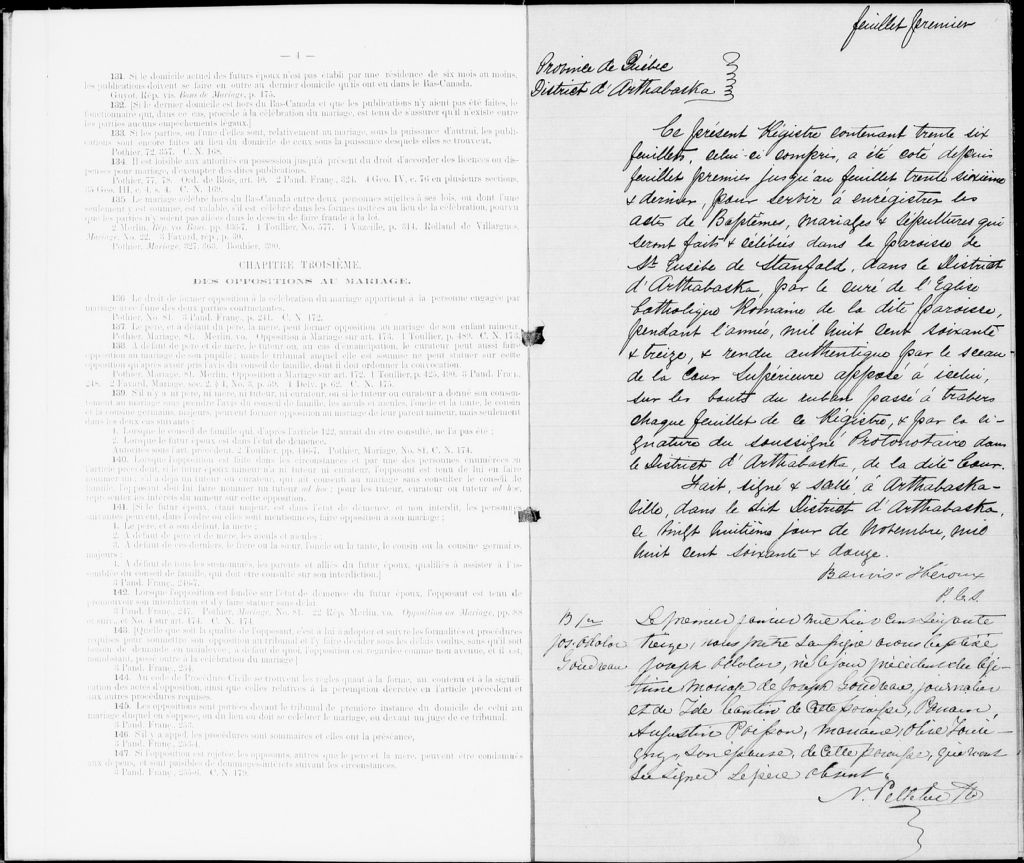 — 4 —
131. Si le domicile actuel des futurs époux n'est pas établi par une résidence de six mois au moins,
les publications doivent se faire en outre au dernier domicile qu'ils ont eu dans le Bas-Canada.
Guyot, Rép. vis. Bans de Mariage, p. 175.
132. [Si le dernier domicile est hors du Bas-Canada et que les publications n'y aient pas été faites, le
fonctionnaire qui, dans ce cas, procède à la célébration du mariage, est tenu de s'assurer qu'il n'existe entre
les parties aucuns empêchements légaux.]
133. Si les parties, ou l'une d'elles sont, relativement au mariage, sous la puissance d'autrui, les publi-
cations sont encore faites au lieu du domicile de ceux sous la puissance desquels elles se trouvent.
Pothier, 72, 357. C. N. 168.
134. Il est loisible aux autorités en possession jusqu'à présent du droit d'accorder des licences ou dis-
penses pour mariage, d'exempter des dites publications.
Pothier, 77, 78. Ord. de Blois, art. 40. 2 Pand. Franç., 324. 4 Geo. IV, c. 76 en plusieurs sections,
35 Geo. III, c. 4, s. 4. C. N. 169.
135. Le mariage célébré hors du Bas-Canada entre deux personnes sujettes à ses lois, ou dont l'une
seulement y est soumise, est valide, s'il est célébré dans les formes usitées au lieu de la célébration, pourvu
que les parties n'y soient pas allées dans le dessein de faire fraude à la loi.
Pothier, Mariage, 327, 363. Bouhier, 390.
CHAPITRE TROISIÈME.
DES OPPOSITIONS AU MARIAGE.
136. Le droit de former opposition à la célébration du mariage appartient à la personne engagée par
mariage avec l'une des deux parties contractantes.
Pothier, No. 81. 3 Pand. Franç., p. 241. C. N. 172.
137. Le père, et à défaut du père, la mère, peut former opposition au mariage de son enfant mineur.
Pothier, Mariage, 81. Merlin, vo. Opposition à Mariage sur art. 173. 1 Toullier, p. 489. C. N. 173.
138. A défaut de père et de mère, le tuteur, ou, au cas d'émancipation, le curateur, peut aussi faire
opposition au mariage de son pupille; mais le tribunal auquel elle est soumise ne peut statuer sur cette
opposition qu'après avoir pris l'avis du conseil de famille, dont il doit ordonner la convocation.
139. S'il n'y a ni père, ni mère, ni tuteur, ni curateur, ou si le tuteur ou curateur a donné son consen-
tement au mariage sans prendre l'avis du conseil de famille, les aïeuls et aïeules, l'oncle et la tante, le cousin
et la cousine germains, majeurs, peuvent former opposition au mariage de leur parent mineur, mais seulement
dans les deux cas suivants:
1. Lorsque le conseil de famille qui, d'après l'article 122, aurait du être consulté, ne l'a pas été;
2. Lorsque le futur époux est dans l'état de démence.
Autorités sous l'art. précédent. 2 Toullier, pp. 446-7. Pothier, Mariage, No. 81. C. N. 174.
140. Lorsque l'opposition est faite dans les circonstances et par une des personnes énoncées en
l'article précédent, si le futur époux mineur n'a ni tuteur ni curateur, l'opposant est tenu de lui en faire
nommer un; s'il a déjà un tuteur ou curateur, qui ait consenti au mariage sans consulter le conseil de
famille, l'opposant doit lui faire nommer un tuteur ad hoc; pour les tuteur, curateur ou tuteur ad hoc,
représenter les intérêts du mineur sur cette opposition.
141. [Si le futur époux, étant majeur, est dans l'état de démence, et non interdit, les personnes
suivantes peuvent, dans l'ordre où elles sont ici énoncées, faire opposition à son mariage:
1. Le père, et à son défaut, la mère;
2. A défaut de père et de mère, les aïeuls et aïeules;
3. A défaut de ces derniers, le frère ou la sœur, l'oncle ou la tante, le cousin ou la cousine germains,
majeurs;
4. A défaut de tous les susnommés, les parents et alliés du futur époux, qualifiés à assister à l'as-
semblée du conseil de famille, qui doit être consulté sur son interdiction.]
3 Pand. Franç., 246-7.
142. Lorsque l'opposition est fondée sur l'état de démence du futur époux, l'opposant est tenu de
promouvoir son interdiction et d'y faire statuer sans délai.
3 Pand. Franç., 247. Pothier, Mariage, No. 81. 22 Rép. Merlin, vo. Opposition au Mariage, pp. 88
et suiv., et No. 4 sur art. 174. C. N. 174.
143. [Quelle que soit la qualité de l'opposant, c'est à lui à adopter et suivre les formalités et procédures
requises pour soumettre son opposition au tribunal et l'y faire décider sous les délais voulus, sans qu'il soit
besoin de demande en mainlevée; à défaut de quoi, l'opposition est regardée comme non avenue, et il est,
nonobstant, passé outre à la célébration du mariage.]
3 Pand. Franç., 254.
144. Au Code de Procédure Civile se trouvent les règles quant à la forme, au contenu et à la signifi-
cation des actes d'opposition, ainsi que celles relatives à la péremption décrétée en l'article précédent et
aux autres procédures requises.
145. Les oppositions sont portées devant le tribunal de première instance du domicile de celui au
mariage duquel on s'oppose, ou du lieu où doit se célébrer le mariage, ou devant un juge de ce tribunal.
3 Pand. Franç., 253.
146. S'il y a appel, les procédures sont sommaires et elles ont la préséance.
3 Pand. Franç., 253-4.
147. Si l'opposition est rejetée, les opposants, autres que le père et la mère, peuvent être condamnés
aux dépens, et sont passibles de dommages-intérêts suivant les circonstances.
3 Pand. Franç., 255-6. C. N. 179.
feuillet premier
Province de Québec
District d'Arthabaska
Ce présent Régistre contenant trente six
feuillets, celui-ci compris, a été coté depuis
feuillet premier jusqu'au feuillet trente sixième
& dernier, pour servir à enrégistrer les
actes de Baptêmes, mariages & sépultures qui
seront faits & célébrés dans la paroisse de
St. Eusèbe de Stanfold, dans le District
d'Arthabaska, par le curé de l'Eglise
Catholique Romaine de la dite paroisse,
pendant l'année, mil huit cent soixante
& treize, & rendu authentique par le sceau
de la Cour Supérieure apposé à icelui,
sur les bouts du ruban passé à travers
chaque feuillet de ce Régistre, & par la si-
gnature du soussigné Protonotaire dans
le District d'Arthabaska, de la dite Cour.
Fait, signé & scellé, à Arthabaska-
ville, dans le dit District d'Arthabaska,
ce vingt huitième jour de Novembre, mil
huit cent soixante & douze.
P. C. S.
B 1er
Le premier janvier mil huit cent soixante
treize, nous prêtre soussigné avons baptisé
Joseph né le jour précédent du légi-
time mariage de Joseph Goudreau, journalier
et de Ida Cantin de cette paroisse, Parrain,
Augustin Poisson, marraine,
son épouse, de cette paroisse, qui n'ont
su signer. Le père absent.
N. Pelletier Ptr